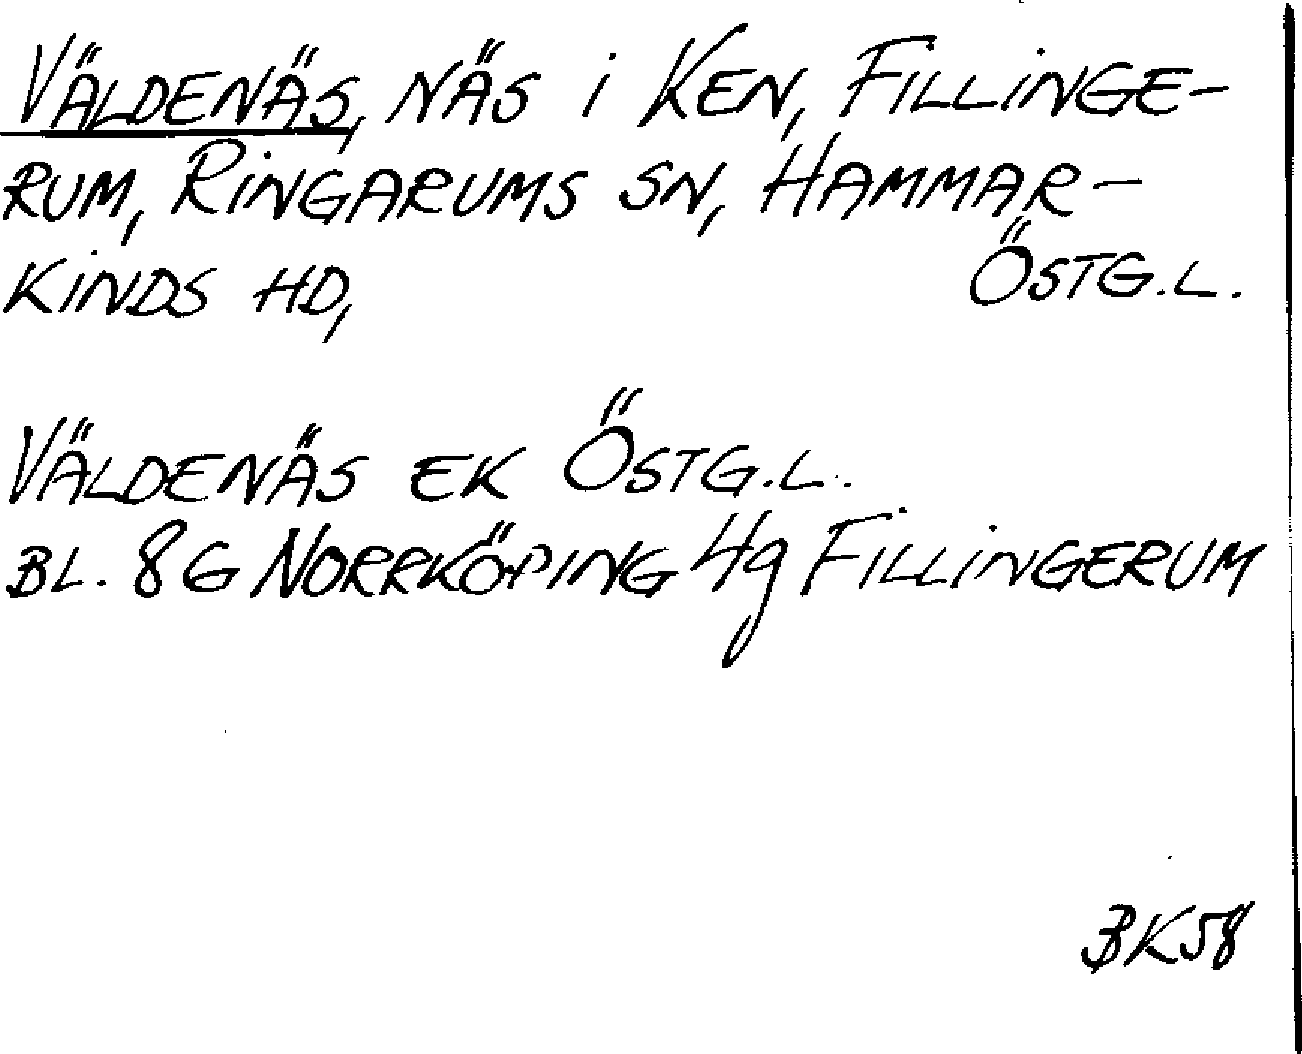 VÄLDENÄS, NÄS i KEN, FILLINGE-
RUM, RINGARUMS SN, HAMMAR-
KINDS HD, ÖSTG.L.
VÄLDENÄS EK ÖSTG.L.
BL. 8G NORRKÖPING 4g FILLINGERUM
BK58